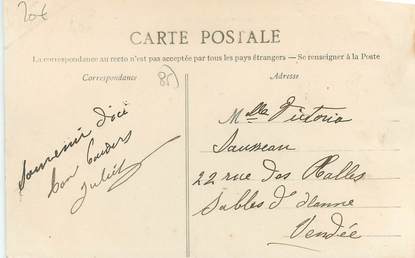 20€
CARTE POSTALE
La correspondance au recto n'est pas acceptée par tous les pays étrangers — Se renseigner à la Poste
Correspondance
85)
Adresse
Souvenir d'ici
bon baisers
Juliet
Melle Victoria
Sausseau
22 rue des Halles
Sables d'olonne
Vendée